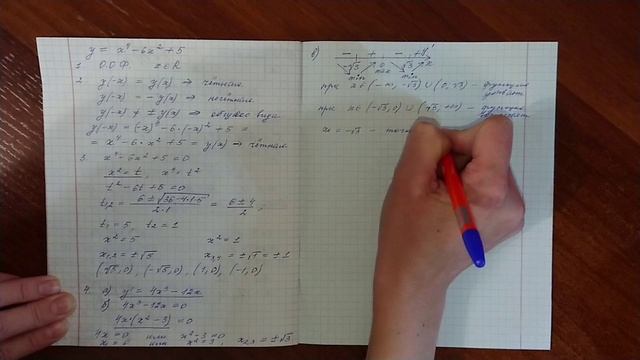 y = x⁴ - 6x² + 5
1. О.О.Ф. x ∈ R
2. y(-x) = y(x) ⇒ чётная.
y(-x) = - y(x) ⇒ нечётная.
y(-x) ≠ ± y(x) ⇒ общего вида.
y(-x) = (-x)⁴ - 6·(-x)² + 5 =
= x⁴ - 6·x² + 5 = y(x) ⇒ чётная.
3. x⁴ - 6x² + 5 = 0
x² = t, x⁴ = t²
t² - 6t + 5 = 0
t₁,₂ = (6 ± √(36-4·1·5))/(2·1) = (6 ± 4)/2 ;
t₁ = 5, t₂ = 1
x² = 5 x² = 1
x₁,₂ = ±√5 x₃,₄ = ±√1 = ±1
(√5, 0), (-√5, 0), (1, 0), (-1, 0)
4. а) y' = 4x³ - 12x
б) 4x³ - 12x = 0
4x·(x² - 3) = 0
4x = 0 или x² - 3 = 0
x₁ = 0 или x² = 3; x₂,₃ = ±√3
в) - + - + y'
-√3 0 √3 x
min max min
при x ∈ (-∞, -√3) ∪ (0, √3) - функция
убывает
при x ∈ (-√3, 0) ∪ (√3, +∞) - функция
x = -√3 -